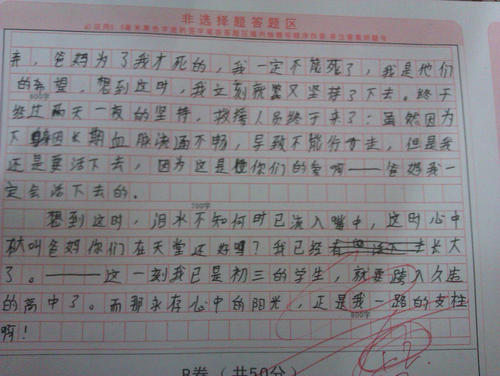 非选择题答题区
弃，爸妈为了我才死的，我一定不能死了，我是他们
的希望，想到这时，我立刻就又坚持了下去。终于
600字
经过两天一夜的坚持，救援人员终于来了：虽然因为
下长期血脉流通不畅，导致不能行走，但是我
还是要活下去，因为这是你们的爱啊——爸妈我一
定会活下去的。
700字
想到这时，泪水不知何时已流入嘴中，这时心中
默叫爸妈你们在天堂还好吗？我已经长大
了。——这一刻我已是初三的学生，就要跨入久违
的高中了。而那永存心中的阳光，正是我一路的支柱
800字
啊！
B卷（共50分）